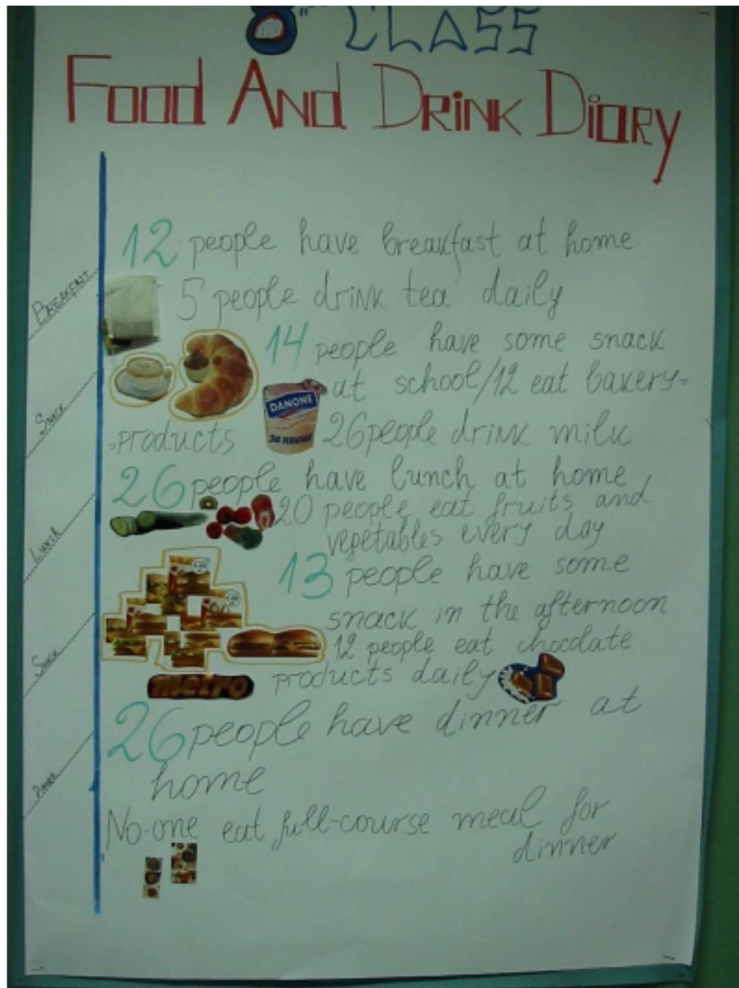 8th CLASS
FOOD AND DRINK DIARY
BREAKFAST
12 people have breakfast at home
5 people drink tea daily
SNACK
14 people have some snack
at school/12 eat bakery-
-products
DANONE
26 people drink milk
LUNCH
26 people have lunch at home
20 people eat fruits and
vegetables every day
SNACK
13 people have some
snack in the afternoon
12 people eat chocolate
products daily
metro
DINNER
26 people have dinner at
home
No-one eat full-course meal for
dinner